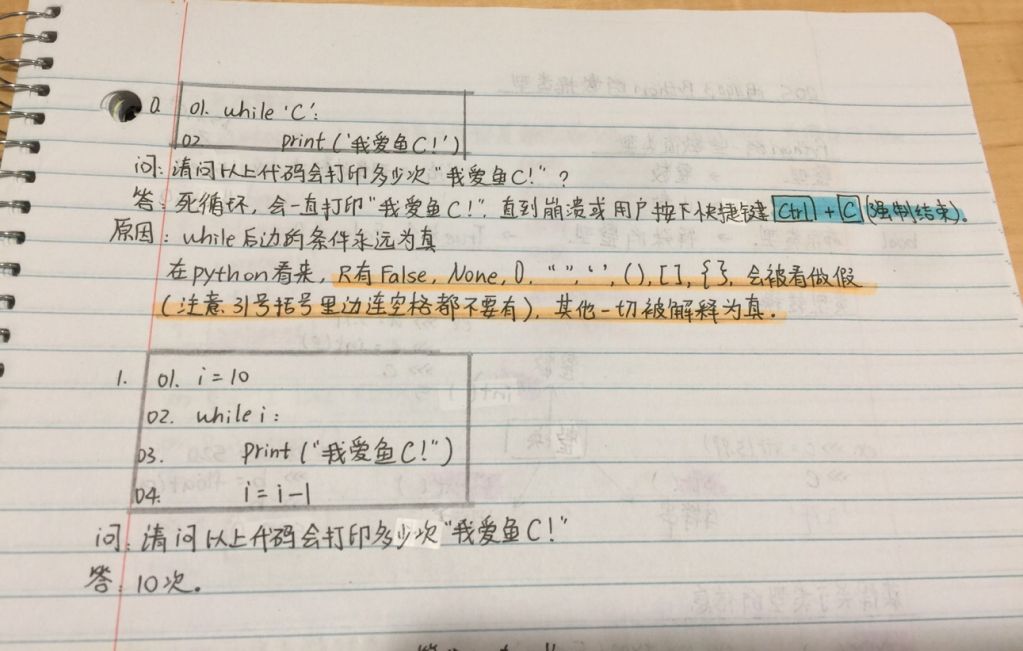 0. 01. while 'C':
02 print('我爱鱼C!')
问:请问以上代码会打印多少次"我爱鱼C!"?
答:死循环,会一直打印"我爱鱼C!",直到崩溃或用户按下快捷键 Ctrl + C (强制结束)。
原因:while后边的条件永远为真
在python看来,只有False, None, 0, "", '', (), [], {}, 会被看做假
(注意.引号括号里边连空格都不要有),其他一切被解释为真.
1. 01. i=10
02. while i:
03. print("我爱鱼C!")
04. i=i-1
问:请问以上代码会打印多少次"我爱鱼C!"
答:10次。